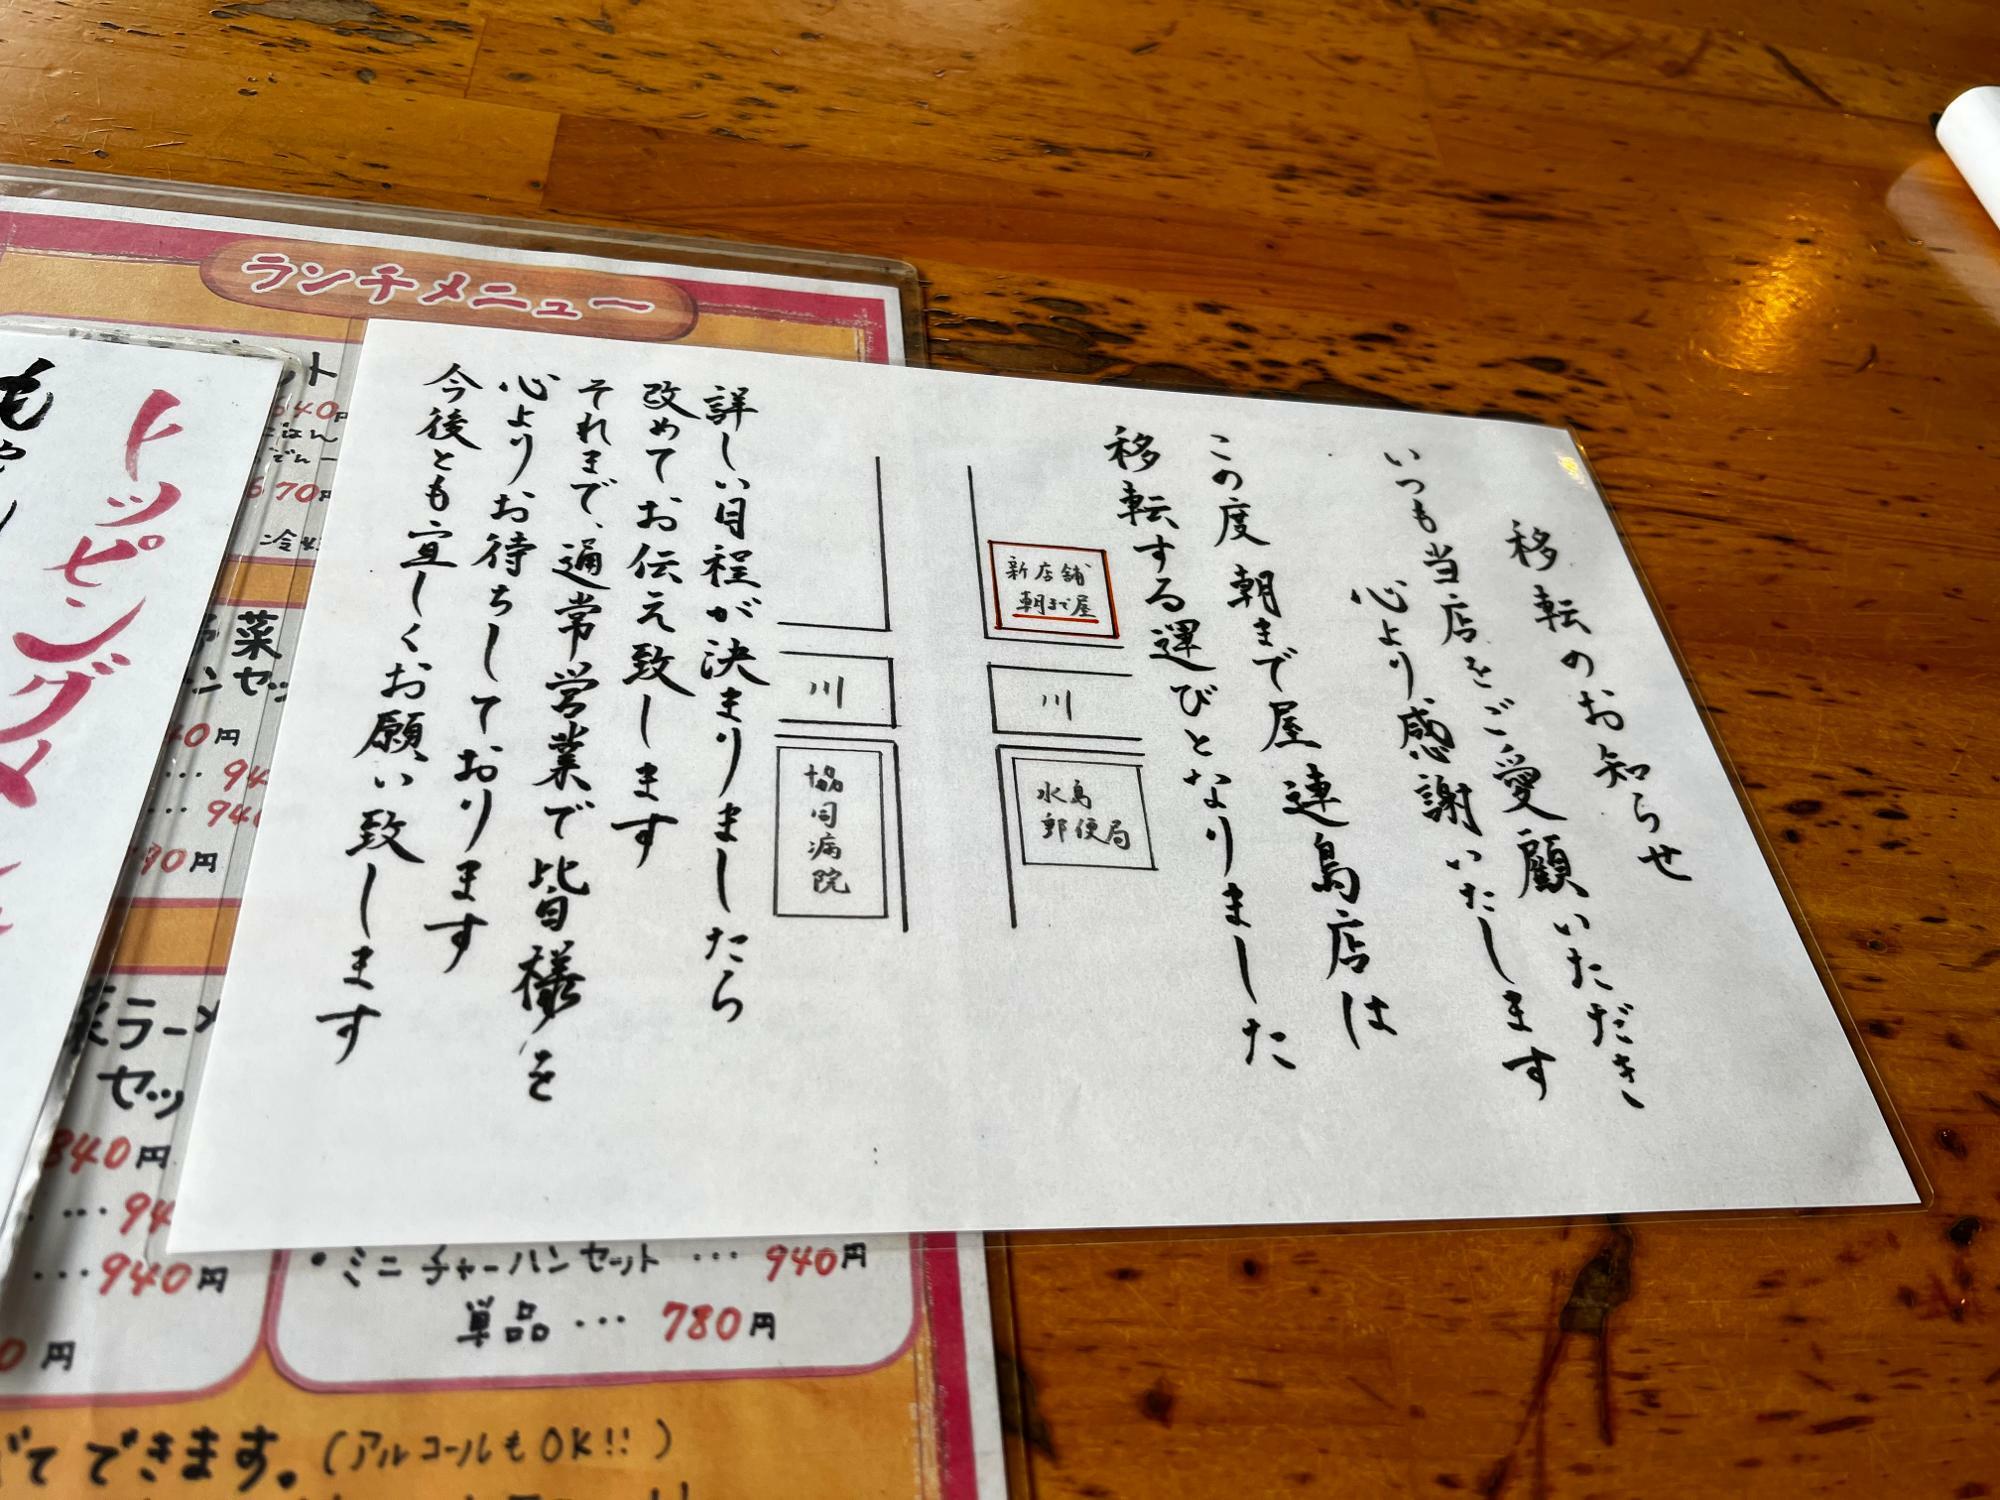 移転のお知らせ
いつも当店をご愛顧いただき
心より感謝いたします
この度朝まで屋連島店は
移転する運びとなりました
新店舗
朝まで屋
川
川
水島
郵便局
協同病院
詳しい日程が決まりましたら
改めてお伝え致します
それまで、通常営業で皆様を
心よりお待ちしております
今後とも宜しくお願い致します
ランチメニュー
トッピングメ
も
640円
ごはん
670円
菜
セッ
40円
… 94
… 940
円
菜ラーメ
セッ
840円
… 94
… 940円
0円
・ミニチャーハンセット … 940円
単品 … 780円
てできます。(アルコールもOK!!)